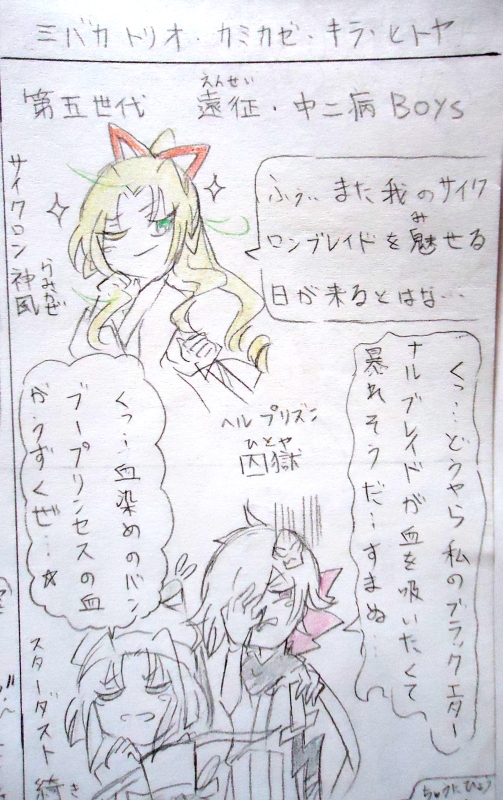 三バカトリオ・カミカゼ・キラ・ヒトヤ
えんせい
第五世代 遠征・中二病Boys
サイクロン神風
かみかぜ
ふぅ… また我のサイク
ロンブレイドを魅せる
み
日が来るとはな…
くっ…どうやら私のブラックエター
ナルブレイドが血を吸いたくて
暴れそうだ…すまぬ…
ヘルプリズン
ひとや
囚獄
くっ…血染めのバン
ブープリンセスの血
が、うずくぜ…☆
スターダスト